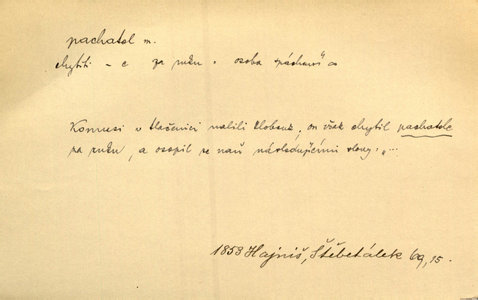 pachatel m.
chytiti – e za ruku = osoba
Komusi v tlačenici narazili klobouk, on však chytil pachatele
za ruku, a osopil se naň následujícími slovy: „...
1858 Hajniš, Štěbetálek 69, 15.